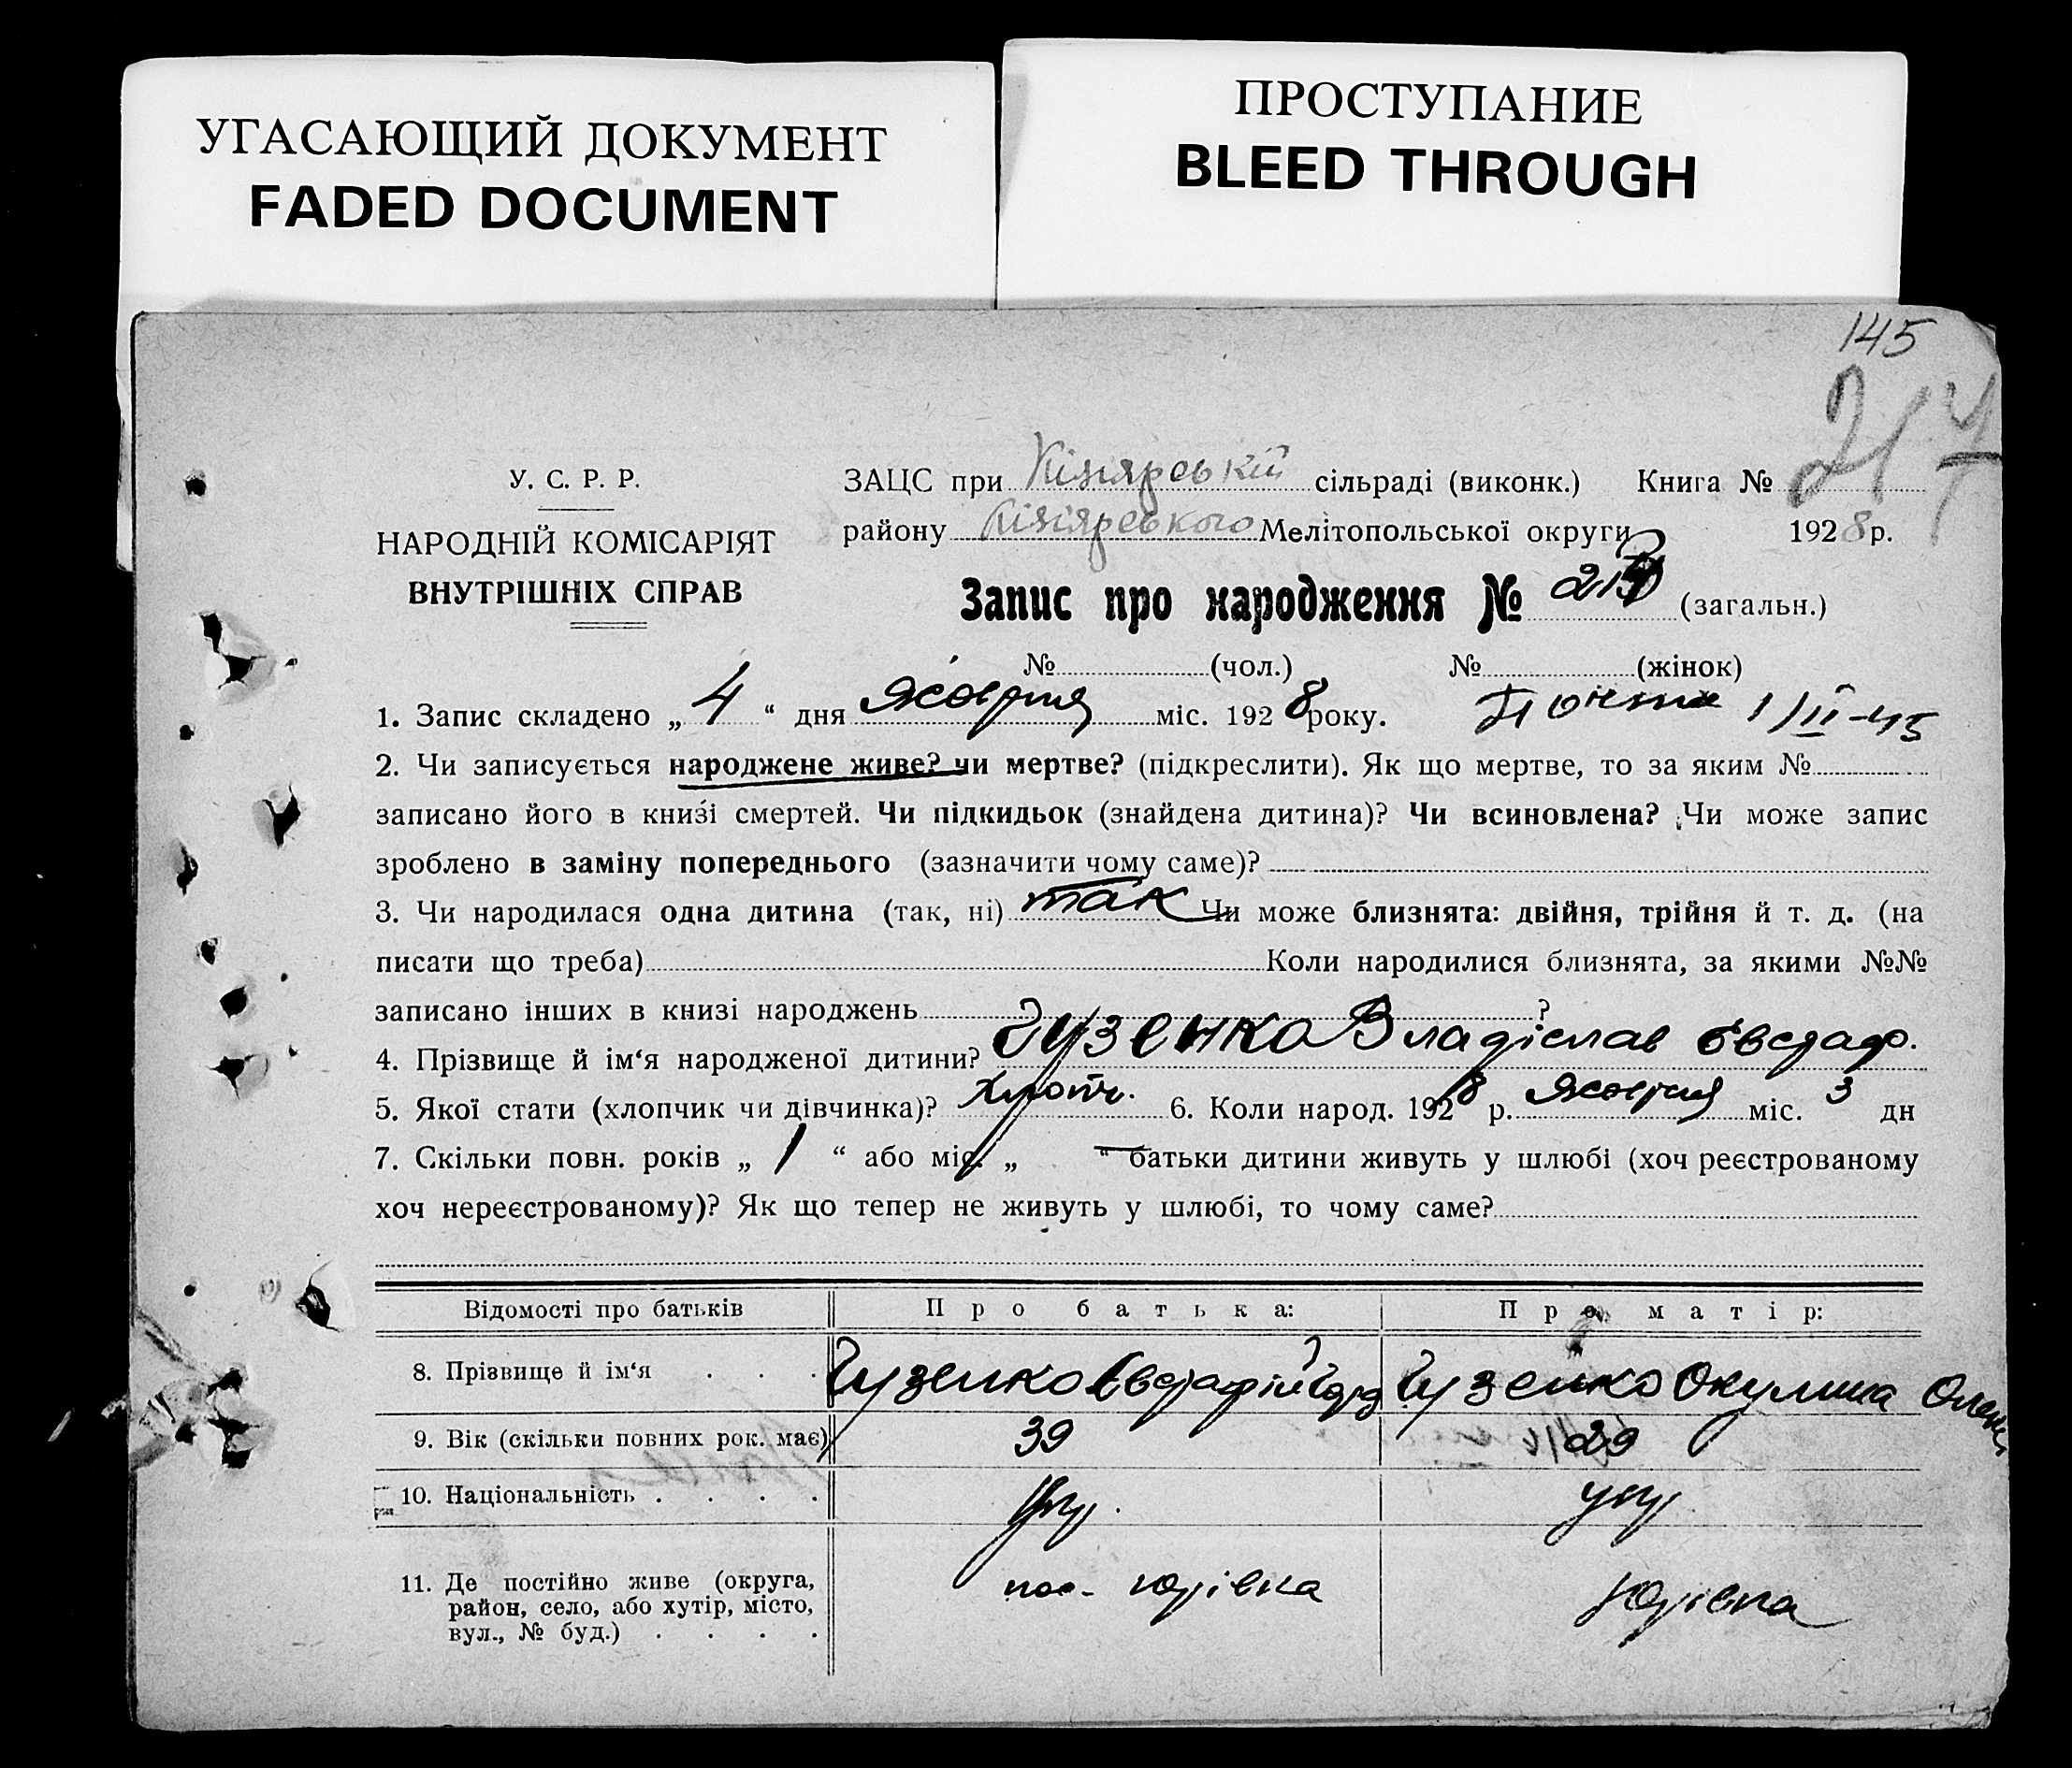 УГАСАЮЩИЙ ДОКУМЕНТ
FADED DOCUMENT
ПРОСТУПАНИЕ
BLEED THROUGH
145
У. С. Р. Р.
НАРОДНІЙ КОМІСАРІЯТ
ВНУТРІШНІХ СПРАВ
ЗАЦС при Кізіярській сільраді (виконк.) Книга №
району Кізіярського Мелітопольської округи 1928 р.
Запис про народження № (загальн.)
№ (чол.) № (жінок)
1. Запис складено „ 4 “ дня Жовтня міс. 1928 року. 1/II-45
2. Чи записується народжене живе? чи мертве? (підкреслити). Як що мертве, то за яким №
записано його в книзі смертей. Чи підкидьок (знайдена дитина)? Чи всиновлена? Чи може запис
зроблено в заміну попереднього (зазначити чому саме)?
3. Чи народилася одна дитина (так, ні) так Чи може близнята: двійня, трійня й т. д. (на
писати що треба) Коли народилися близнята, за якими №№
записано інших в книзі народжень ?
4. Прізвище й ім‘я народженої дитини? Гузенко Владіслав Євстаф.
5. Якої стати (хлопчик чи дівчинка)? Хлопч. 6. Коли народ. 1928 р. Жовтня міс. 3 дн
7. Скільки повн. років „ 1 “ або міс. „ — “ батьки дитини живуть у шлюбі (хоч реєстрованому
хоч нереєстрованому)? Як що тепер не живуть у шлюбі, то чому саме?
Відомості про батьків Про батька: Про матір:
8. Прізвище й ім‘я . . . Гузенко Євстафій Гузенко Окулина
9. Вік (скільки повних рок. має) 39 29
10. Національність . . . . Укр. укр
11. Де постійно живе (округа, пос. Юрівка Юрівка
район, село, або хутір, місто,
вул., № буд.) . . . .